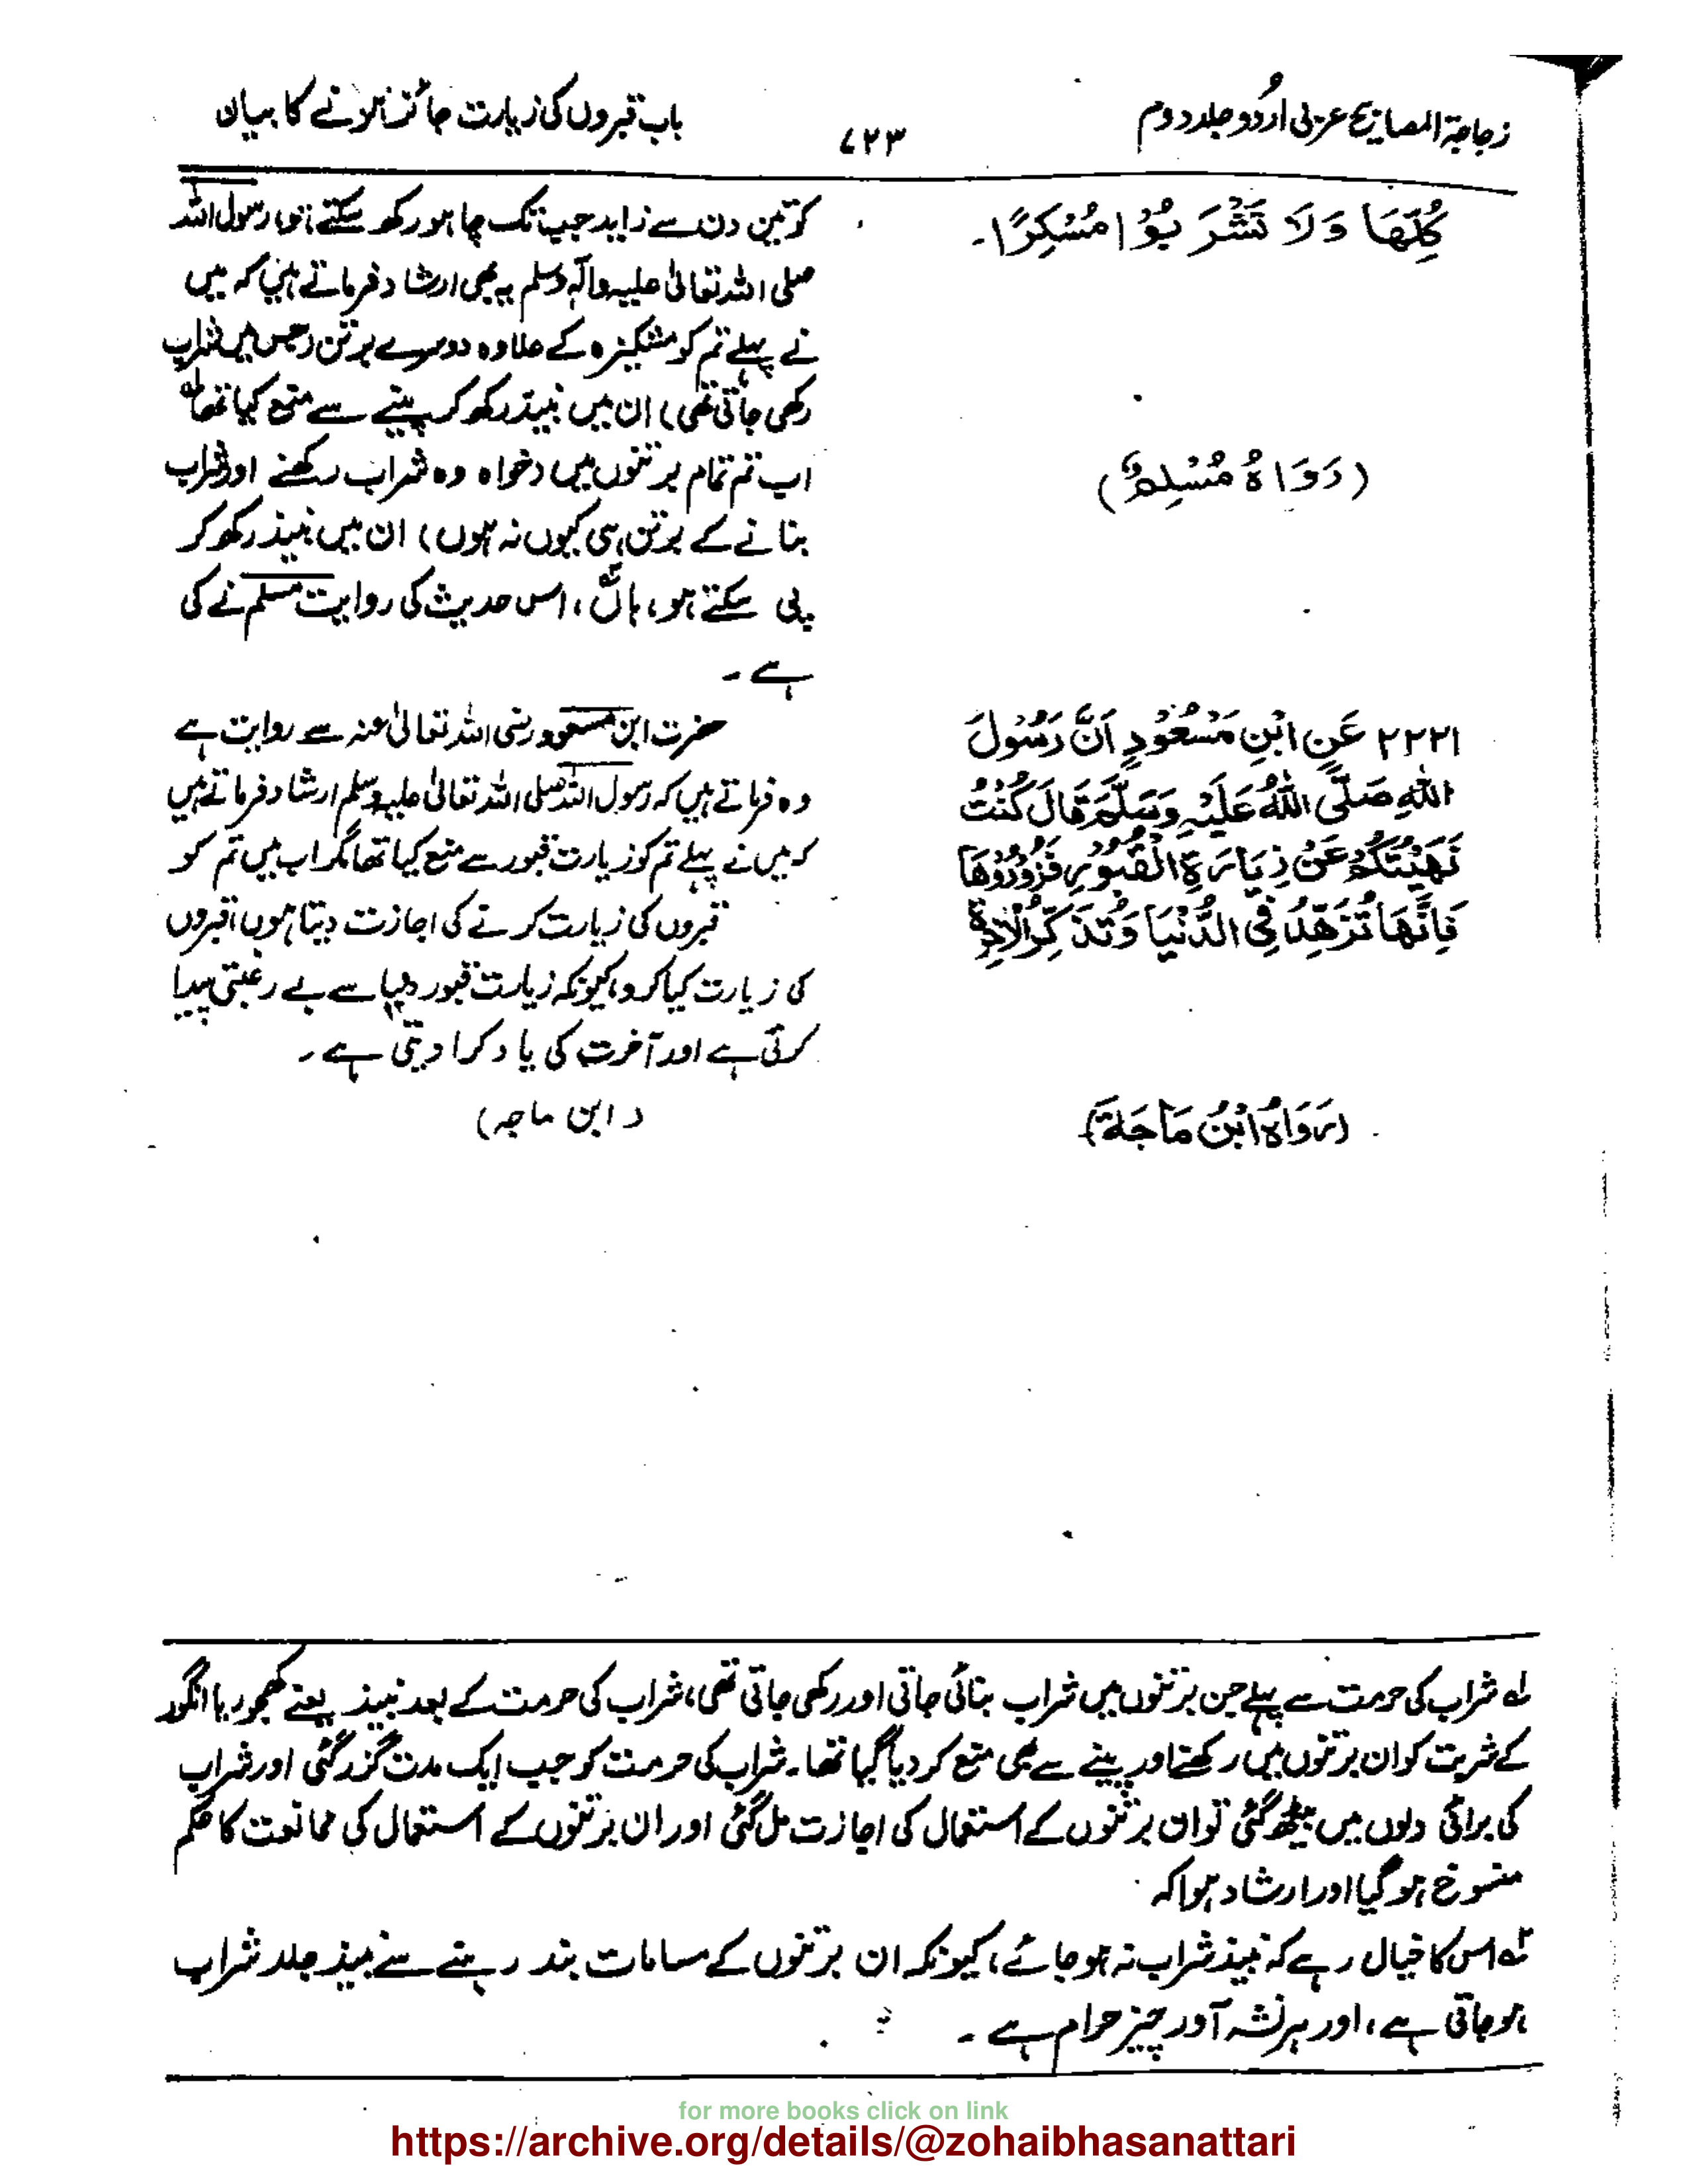 زجاجۃ المصابیح عربی اردو جلد دوم
۷۲۳
باب قبروں کی زیارت جائز ہونے کا بیان
كُلِّهَا وَلَا تَشْرَبُوْا مُسْكِرًا۔
(رَوَاهُ مُسْلِمٌ)
۲۲۲۱ عَنِ ابْنِ مَسْعُوْدٍ اَنَّ رَسُوْلَ
اللهِ صَلَّى اللهُ عَلَيْهِ وَسَلَّمَ قَالَ كُنْتُ
نَهَيْتُكُمْ عَنْ زِيَارَةِ الْقُبُوْرِ فَزُوْرُوْهَا
فَاِنَّهَا تُزَهِّدُ فِي الدُّنْيَا وَتُذَكِّرُ الْاٰخِرَةَ
(رَوَاهُ ابْنُ مَاجَةَ)
کو تین دن سے زاید جب تک چاہو رکھ سکتے ہو، رسول اللہ
صلی اللہ تعالیٰ علیہ واٰلہٖ وسلم یہ بھی ارشاد فرماتے ہیں کہ میں
نے پہلے تم کو مشکیزہ کے علاوہ دوسرے برتن (جس میں شراب
رکھی جاتی تھی) ان میں نبیذ رکھ کر پینے سے منع کیا تھا لہ
اب تم تمام برتنوں میں (خواہ وہ شراب رکھنے اور شراب
بنانے کے برتن ہی کیوں نہ ہوں) ان میں نبیذ رکھ کر
پی سکتے ہو، ہاں ٢ہ، اس حدیث کی روایت مسلم نے کی
ہے۔
حضرت ابن مسعود رضی اللہ تعالیٰ عنہ سے روایت ہے
وہ فرماتے ہیں کہ رسول اللہ صلی اللہ تعالیٰ علیہ وسلم ارشاد فرماتے ہیں
کہ میں نے پہلے تم کو زیارت قبور سے منع کیا تھا مگر اب میں تم کو
قبروں کی زیارت کرنے کی اجازت دیتا ہوں، قبروں
کی زیارت کیا کرو، کیونکہ زیارت قبور دنیا سے بے رغبتی پیدا
کرتی ہے اور آخرت کی یاد کرا دیتی ہے۔
(ابن ماجہ)
لہ شراب کی حرمت سے پہلے جن برتنوں میں شراب بنائی جاتی اور رکھی جاتی تھی، شراب کی حرمت کے بعد نبیذ یعنے کھجور یا انگور
کے شربت کو ان برتنوں میں رکھنے اور پینے سے بھی منع کر دیا گیا تھا۔ شراب کی حرمت کو جب ایک مدت گزر گئی اور شراب
کی برائی دلوں میں بیٹھ گئی تو ان برتنوں کے استعمال کی اجازت مل گئی اور ان برتنوں کے استعمال کی ممانعت کا حکم
منسوخ ہو گیا اور ارشاد ہوا کہ
٢ہ اس کا خیال رہے کہ نبیذ شراب نہ ہو جائے، کیونکہ ان برتنوں کے مسامات بند رہنے سے نبیذ جلد شراب
ہو جاتی ہے، اور ہر نشہ آور چیز حرام ہے۔
for more books click on link
https://archive.org/details/@zohaibhasanattari